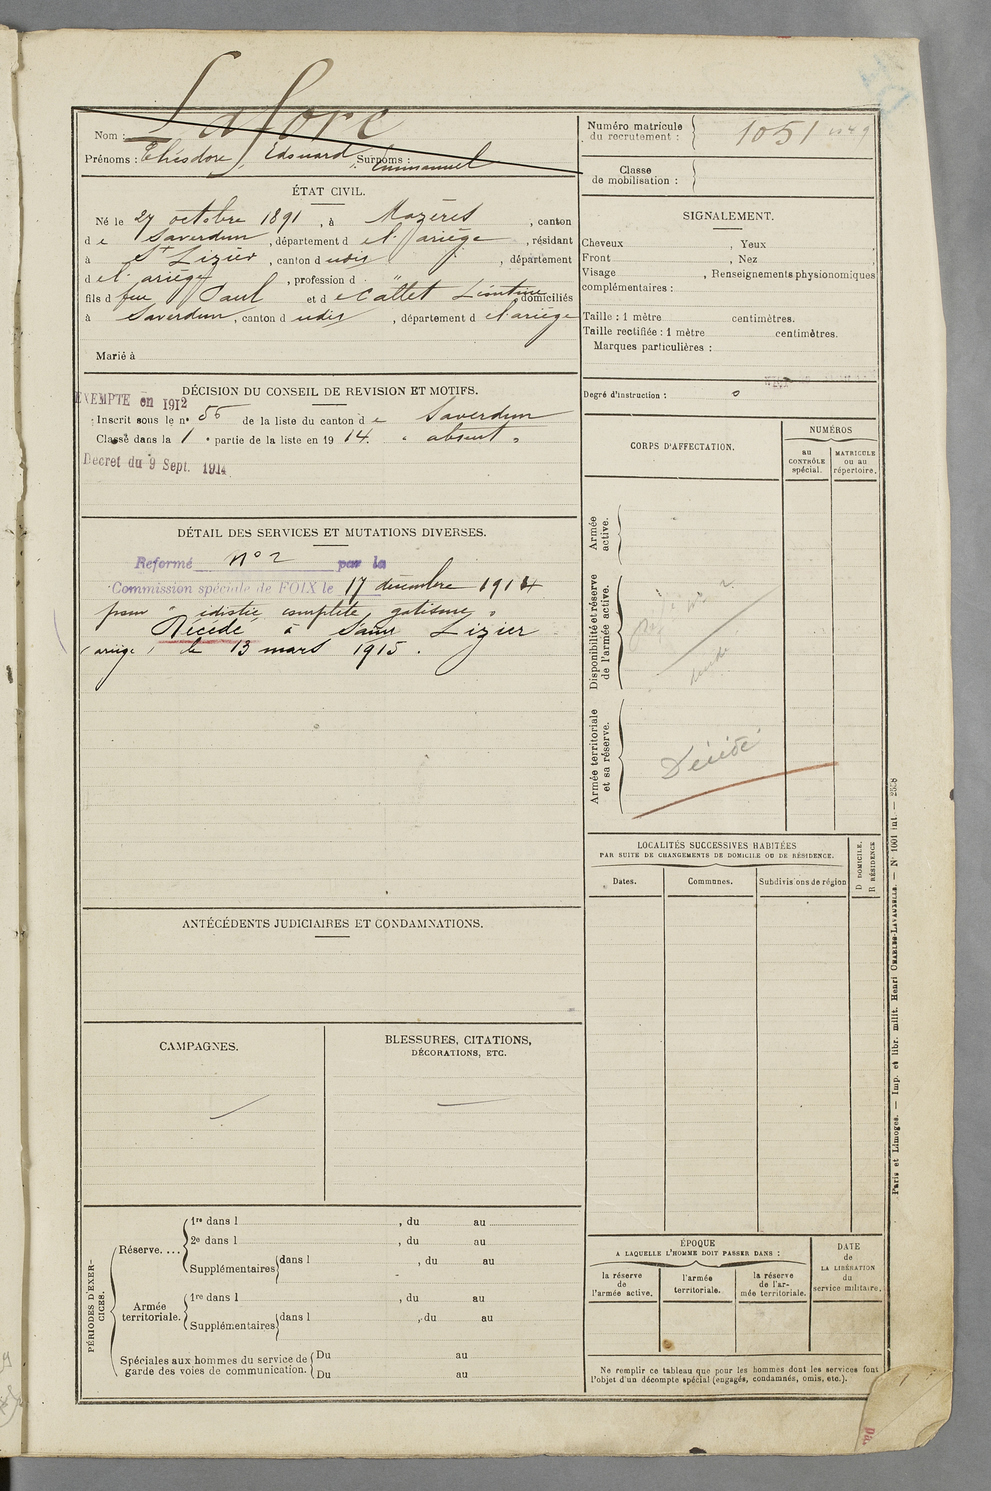 Nom : Lafore
Prénoms : Théodore, Edouard, Surnoms : Emmanuel
Numéro matricule du recrutement : 1051
Classe de mobilisation :
ÉTAT CIVIL.
Né le 27 octobre 1891, à Mazères, canton
de Saverdun, département de l'ariège, résidant
à St Lizier, canton dudis, département
de l'ariège, profession d "
fils d feu Paul et de Cattet Léontine domiciliés
à Saverdun, canton dudis, département de l'ariège
Marié à
SIGNALEMENT.
Cheveux , Yeux ,
Front , Nez ,
Visage , Renseignements physionomiques
complémentaires :
Taille : 1 mètre centimètres.
Taille rectifiée : 1 mètre centimètres.
Marques particulières :
DÉCISION DU CONSEIL DE REVISION ET MOTIFS.
EXEMPTÉ en 1912
Inscrit sous le no 56 de la liste du canton de Saverdun
Classé dans la 1 e partie de la liste en 1914. « absent »
Décret du 9 Sept. 1914
Degré d'instruction : 0
CORPS D'AFFECTATION.
NUMÉROS
au CONTRÔLE spécial.
MATRICULE ou au répertoire.
Armée active.
Disponibilité et réserve de l'armée active.
Armée territoriale et sa réserve.
Décédé
DÉTAIL DES SERVICES ET MUTATIONS DIVERSES.
Reformé no 2 par la
Commission spéciale de FOIX le 17 décembre 1914
pour " idiotie complète, gatisme "
Décédé à Saint Lizier
(ariège) le 13 mars 1915.
LOCALITÉS SUCCESSIVES HABITÉES
PAR SUITE DE CHANGEMENTS DE DOMICILE OU DE RÉSIDENCE.
Dates.
Communes.
Subdivisions de région
D DOMICILE.
R RÉSIDENCE
ANTÉCÉDENTS JUDICIAIRES ET CONDAMNATIONS.
CAMPAGNES.
BLESSURES, CITATIONS,
DÉCORATIONS, ETC.
PÉRIODES D'EXERCICES.
Réserve....
1re dans l , du au
2e dans l , du au
Supplémentaires dans l , du au
Armée territoriale.
1re dans l , du au
Supplémentaires dans l , du au
Spéciales aux hommes du service de Du au
garde des voies de communication. Du au
ÉPOQUE
A LAQUELLE L'HOMME DOIT PASSER DANS :
la réserve de l'armée active.
l'armée territoriale.
la réserve de l'armée territoriale.
DATE de LA LIBÉRATION du service militaire.
Ne remplir ce tableau que pour les hommes dont les services font
l'objet d'un décompte spécial (engagés, condamnés, omis, etc.).
Paris et Limoges. — Imp. et libr. milit. Henri CHARLES-LAVAUZELLE. — No 1001 int. — 2538